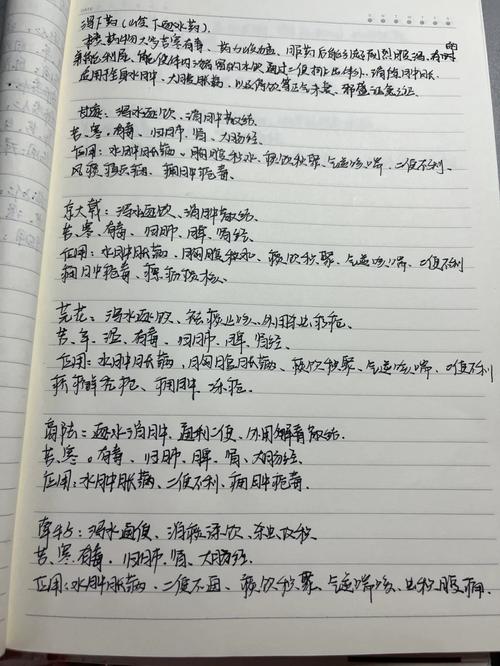 泻下药(峻下逐水药)
本类药物大多苦寒有毒、药力峻猛、用药后能引起剧烈腹泻、有的
兼能利尿、能使体内潴留的水饮通过二便排出体外、消除肿胀
适用于全身水肿、大腹胀满、以及停饮等正气未衰、邪盛证急之证
甘遂:泻水逐饮、消肿散结
苦、寒。有毒、归肺、肾、大肠经
应用:水肿胀满、胸腹积水、痰饮积聚、气逆咳喘、二便不利
风痰癫痫、痈肿疮毒。
京大戟:泻水逐饮、消肿散结
苦、寒、有毒、归肺、脾、肾经
应用:水肿胀满、胸腹积水、痰饮积聚、气逆咳喘、二便不利
痈肿疮毒、瘰疬痰核。
芫花:泻水逐饮、祛痰止咳、外用杀虫疗疮
苦、辛、温、有毒、归肺、脾、肾经
应用:水肿胀满、胸腹胀满、痰饮积聚、气逆咳喘、二便不利
痈肿、冻疮。
商陆:逐水消肿、通利二便、外用解毒散结
苦、寒。有毒、归肺、脾、肾、大肠经
应用:水肿胀满、二便不利、痈肿疮毒。
牵牛子:泻水通便、消痰涤饮、杀虫攻积
苦、寒有毒、归肺、肾、大肠经
应用:水肿胀满、二便不通、痰饮积聚、气逆喘咳、虫积腹痛。